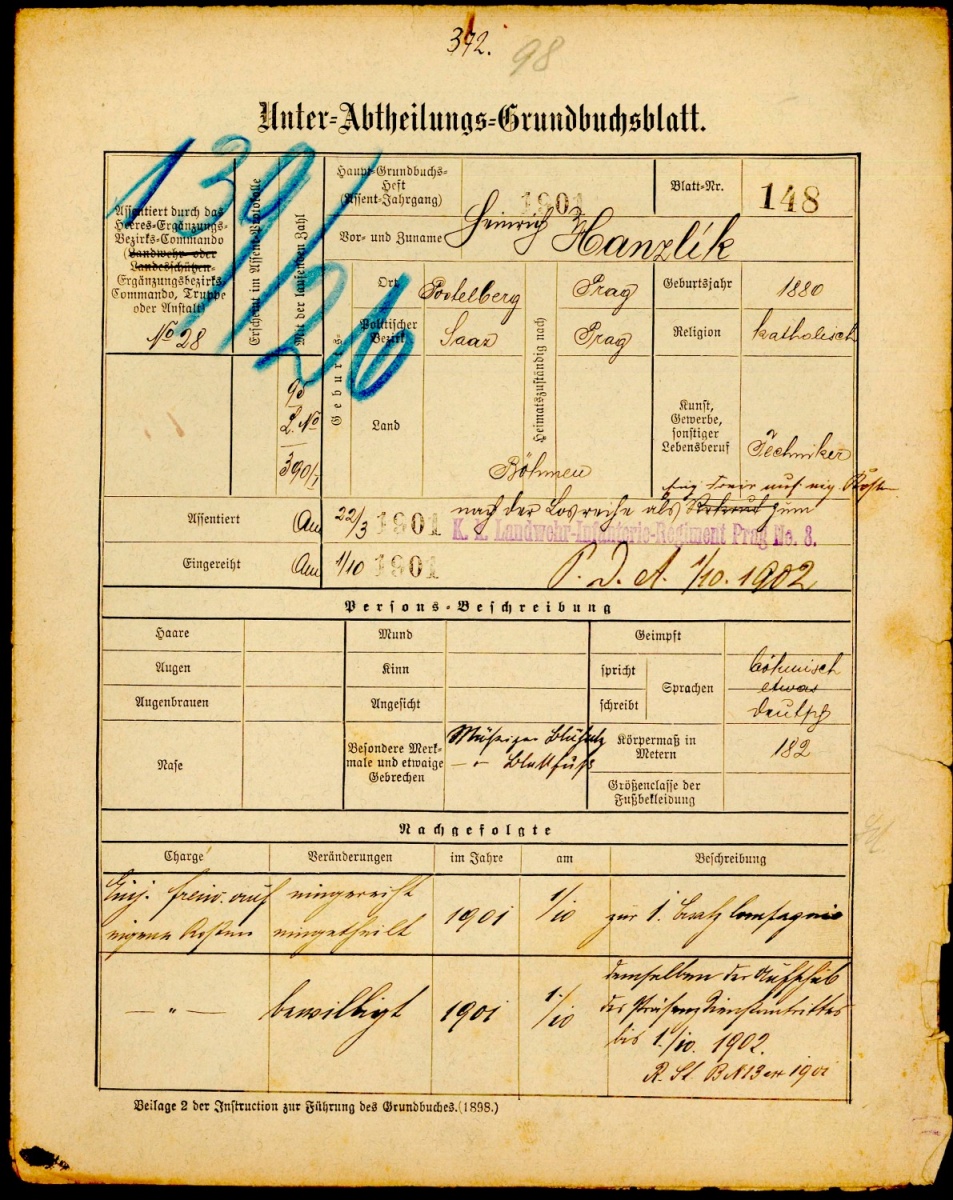 392.
98
Unter-Abtheilungs-Grundbuchsblatt.
139/126
Assentiert durch das
Heeres-Ergänzungs-
Bezirks-Commando
(Landwehr- oder
Landesschützen-
Ergänzungsbezirks
Commando, Truppe
oder Anstalt)
No 28
Erscheint im Assent-Protokolle
Mit der laufenden Zahl
90
L. No
390/1
Haupt-Grundbuchs-
Heft
(Assent-Jahrgang)
1901
Blatt-Nr.
148
Vor- und Zuname
Heinrich Hanzlík
Geburts-
Ort
Postelberg
Heimatszuständig nach
Prag
Geburtsjahr
1880
Politischer
Bezirk
Saaz
Prag
Religion
katholisch
Land
Böhmen
Kunst,
Gewerbe,
sonstiger
Lebensberuf
Techniker
Assentiert
Am 22/3 1901
nach der Losreihe als zum
K. k. Landwehr-Infanterie-Regiment Prag No. 8.
Eingereiht
Am 1/10 1901
P. D. A. 1/10. 1902
Persons-Beschreibung
Haare
Mund
Geimpft
Augen
Kinn
spricht
Sprachen
böhmisch
etwas
Augenbrauen
Angesicht
schreibt
deutsch
Nase
Besondere Merk-
male und etwaige
Gebrechen
Mäßiger
Körpermaß in
Metern
182
Größenclasse der
Fußbekleidung
Nachgefolgte
Charge
Veränderungen
im Jahre
am
Beschreibung
Einj. freiw. auf
eigene Kosten
eingereiht
eingetheilt
1901
1/10
zur 1. Ersatz Compagnie
— " —
bewilligt
1901
1./10
demselben der Aufschub
des Präsenzdienstantrittes
bis 1./10. 1902.
Beilage 2 der Instruction zur Führung des Grundbuches.(1898.)